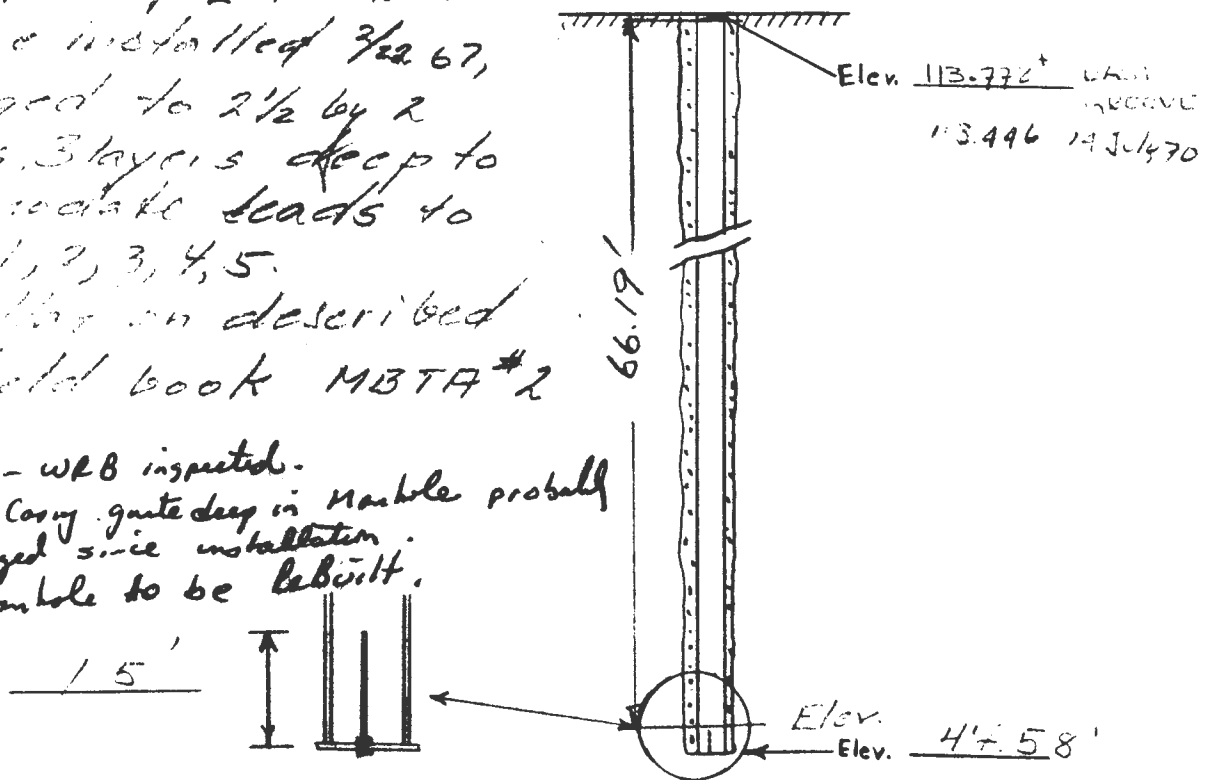 e installed 3/22 67,
ged to 2 1/2 by 2
s, 3 layers deep to
leads to
1, 2, 3, 4, 5.
described
eld book MBTA #2
- WRB inspected.
Casing quite deep in Manhole probably
ged since installation.
anhole to be ReBuilt.
15'
66.19'
Elev. 113.772+ when
113.446 14 July 70
Elev.
Elev. 47.58'